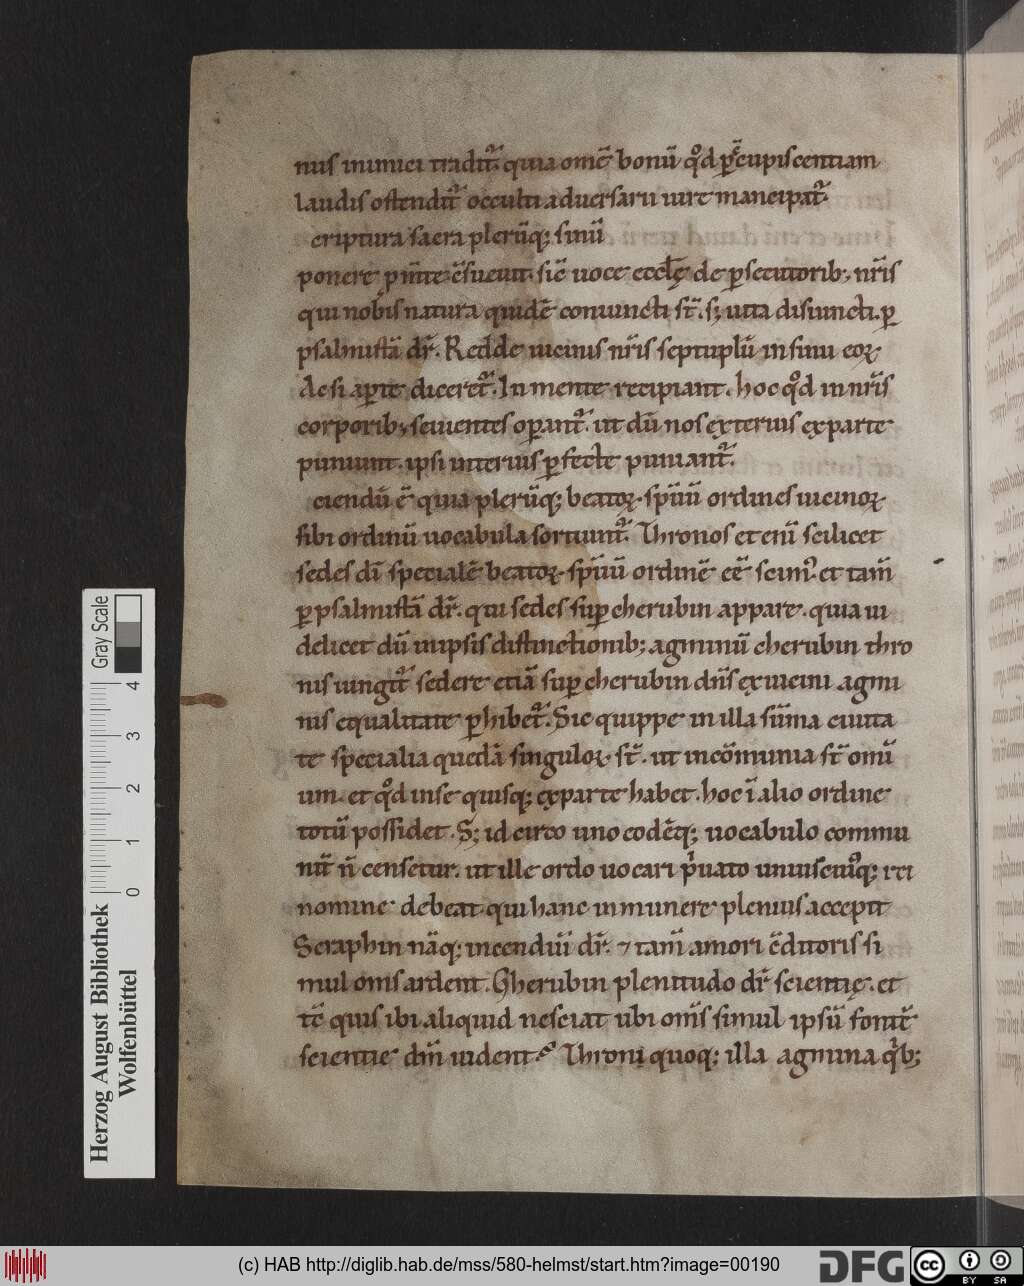 nus inimici tradit᷑ quia om̅e bonū qd̊ p̱ ccupiscentiam
laudis ostendit᷑ occulti adversarii iuri mancipat᷑.
criptura sacra plerūq; sinū
ponere p m̅te c̅suevit. sic̅ voce eccl̅ę de p̱secutorib; nr̅is
qui nobis natura quidē coniuncti st̅. s; vita disiuncti. p̱
psalmistā dr̅. Redde vicinis nr̅is septuplū in sinu eoꝝ
Ac si ap̱te diceret᷑. In mente recipiant. hoc qd̊ in nr̅is
corporib; sevientes op̱ant᷑. ut dū nos exterius ex parte
puniunt. ipsi interius p̱fecte puniant᷑.
ciendū ē quia plerūq; beatoꝝ sp̅uū ordines vicinoꝝ
sibi ordinū vocabula sortiunt᷑. Thronos et eni̅ scilicet
sedes di̅ specialē beatoꝝ sp̅uū ordinē ee̅ scim᷒. et tam̅
p̱ psalmistā dr̅. qui sedes sup̱ cherubin appare. quia vi
delicet dū in ipsis distinctionib; agminū cherubin thro
nis iungit᷑ sedere etiā sup̱ cherubin dn̅s ex vicini agmi
nis equalitate p̱hibet᷑. Sic quippe in illa sūma civita
te specialia quedā singuloꝝ st̅. ut in co̅munia st̅ omi̅
um. et qd̊ in se quisq; ex parte habet. hoc ī alio ordine
totū possidet. S; id circo uno eodēq; vocabulo commu
nit̅ n̅ censetur. ut ille ordo vocari p̍vato uniuscui᷒q; rei
nomine debeat qui hanc in munere plenius accepit
Seraphin nāq; incendiū dr̅. ⁊ tam̅ amori c̅ditoris si
mul om̅s ardent. Cherubin plenitudo dr̅ scientię. et
tc̅ quis ibi aliquid nesciat ubi om̅s simul ipsū fonte̅
scientie dm̅ vident? Throni quoq; illa agmina qͥb;
Gray Scale
0 1 2 3 4
Herzog August Bibliothek
Wolfenbüttel
(c) HAB http://diglib.hab.de/mss/580-helmst/start.htm?image=00190
DFG
cc BY SA